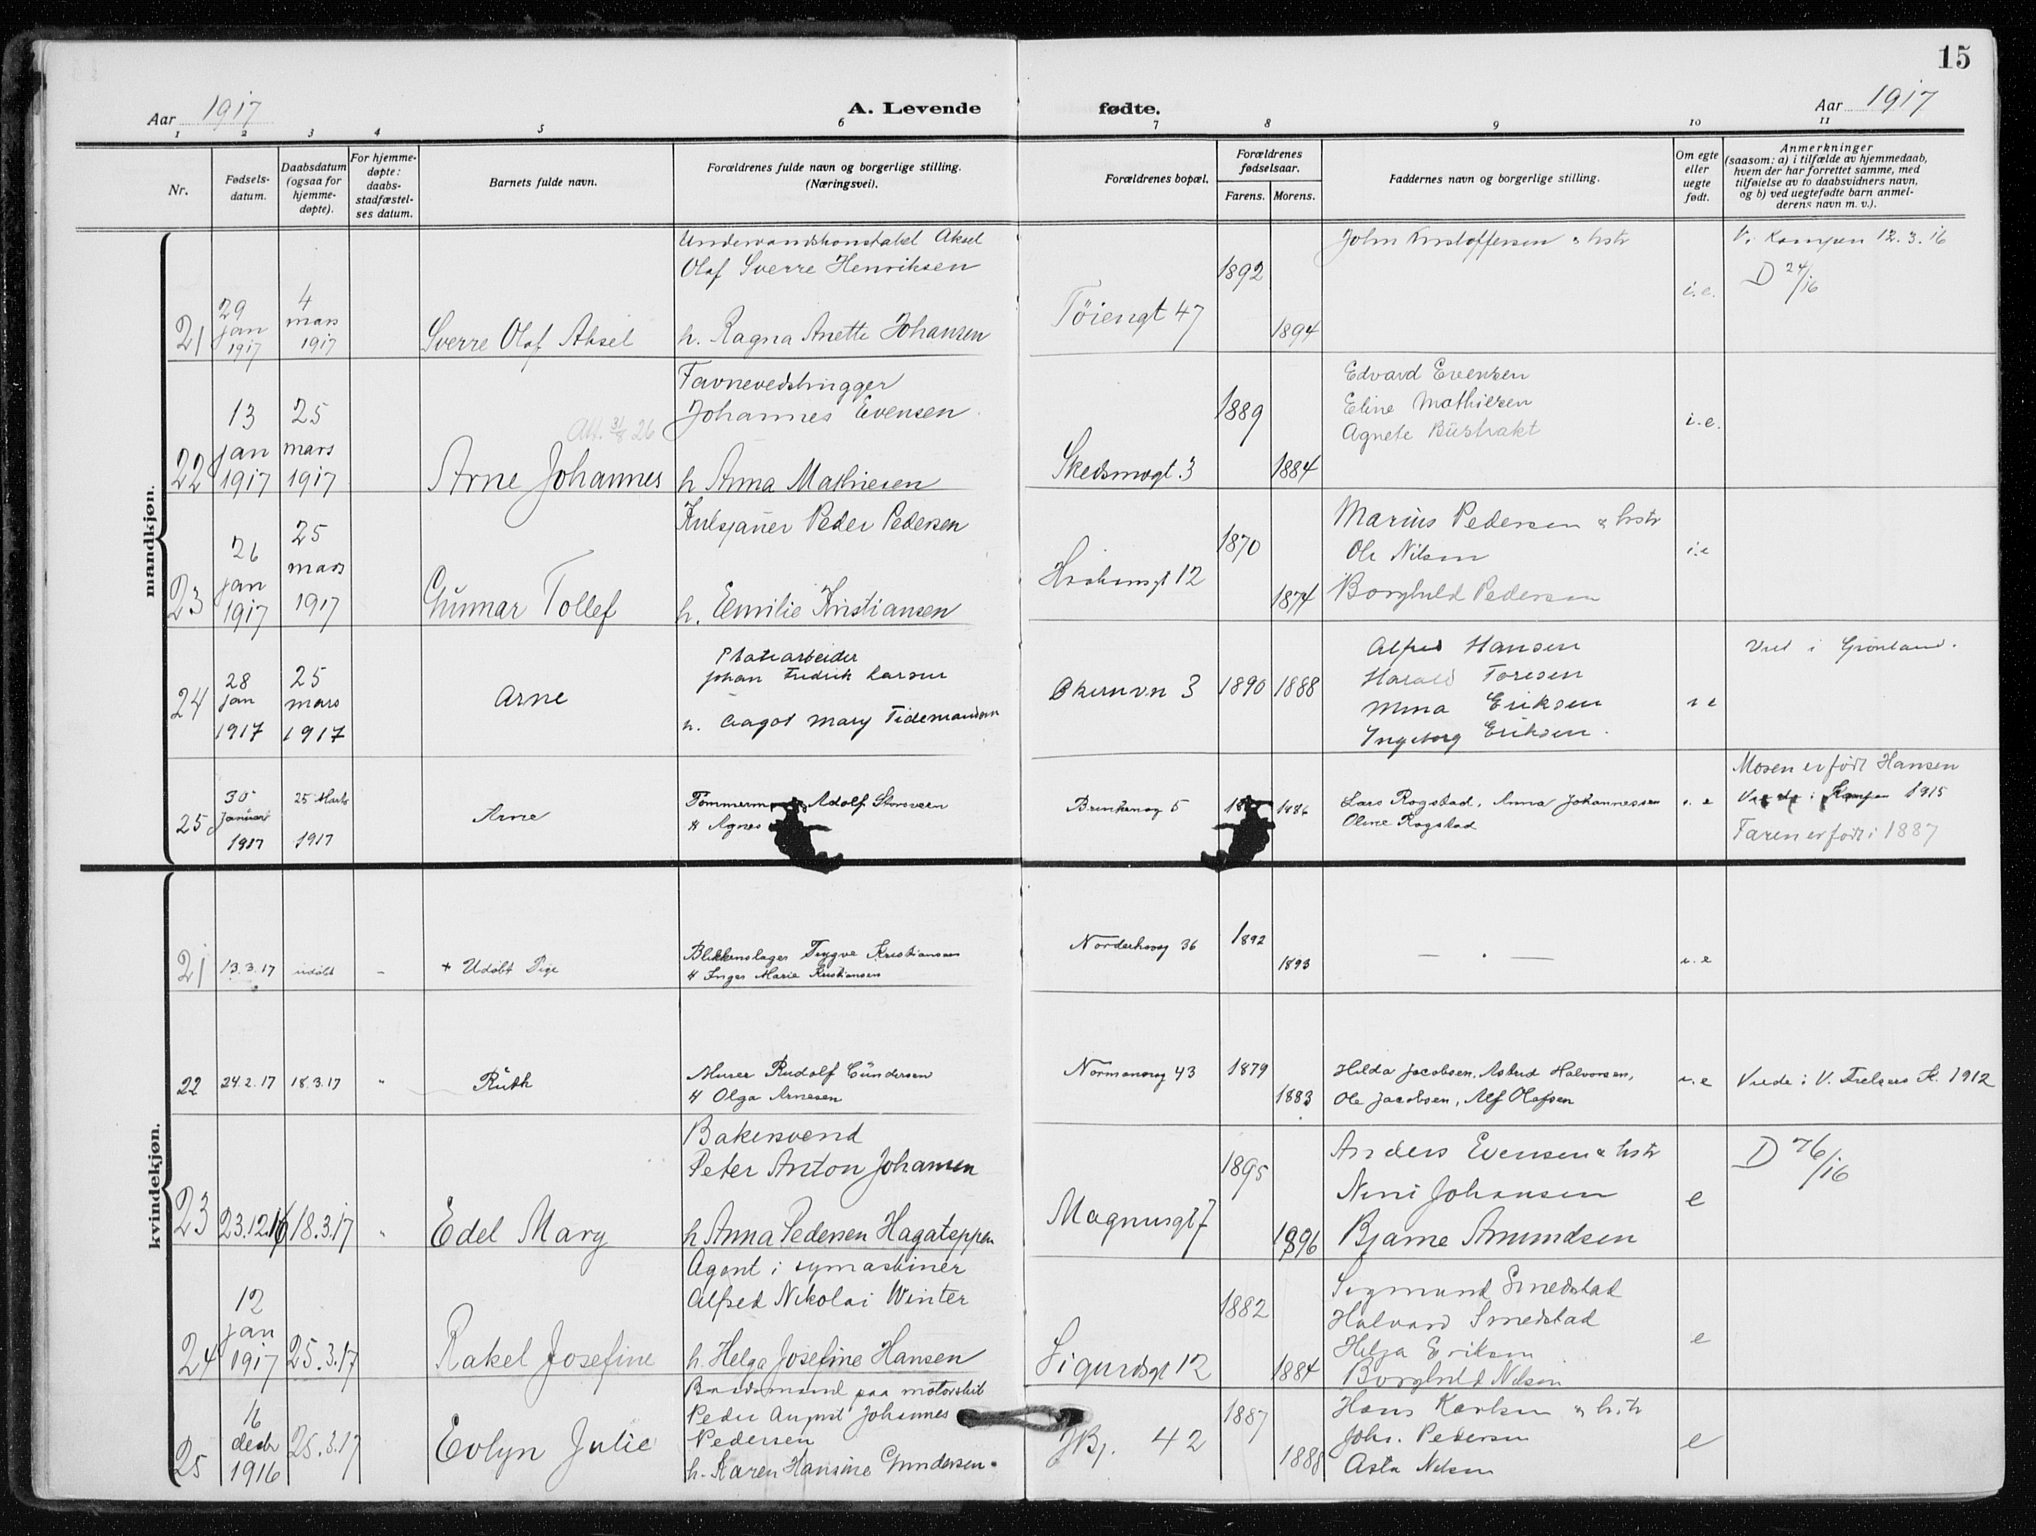 15
Aar 1917
A. Levende fødte.
Aar 1917
1 2 3 4 5 6 7 8 9 10 11
Nr.
Fødsels-
datum.
Daabsdatum
(ogsaa for
hjemme-
døpte).
For hjemme-
døpte:
daabs-
stadfæstel-
ses datum.
Barnets fulde navn.
Forældrenes fulde navn og borgerlige stilling.
(Næringsvei).
Forældrenes bopæl.
Forældrenes
fødselsaar.
Farens. Morens.
Faddernes navn og borgerlige stilling.
Om egte
eller
uegte
født.
Anmerkninger
(saasom: a) i tilfælde av hjemmedaab,
hvem der har forrettet samme, med
tilføielse av to daabsvidners navn,
og b) ved uegtefødte barn anmel-
derens navn m. v.).
mandkjøn.
21
29
jan
1917
4
mars
1917
Sverre Olaf Aksel
Aksel
Olaf Sverre Henriksen
h. Ragna Anette Johansen
Tøiengt 47
1892
1894
John Kristoffersen & hstr
i.e.
V. Kampen 12.3.16
D 24/16
22
13
jan
1917
25
mars
1917
Att. 31/8 26
Arne Johannes
Favnevedhugger
Johannes Evensen
h Anna Mathiesen
Skedsmogt. 3
1889
1884
Edvard Evensen
Eline Mathiesen
Agnete
i.e.
23
26
jan
1917
25
mars
1917
Gunnar Tollef
Kulsjauer Peder Pedersen
h. Emilie Kristiansen
12
1870
1874
Marius Pedersen & hstr
Ole Nilsen
Borghild Pedersen
i.e
24
28
jan
1917
25
mars
1917
Arne
Platearbeider
Johan Fredrik Larsen
h. Aagot Mary Tidemandsen
Økernvn 3
1890
1888
Alfred Hansen
Harald Toresen
Mina Eriksen
Ingeborg Eriksen.
i e
Viet i Grønland.
25
30
Januar
1917
25 Marts
1917
Arne
Adolf Storsveen
H Agnes
5
1886
Lars Rogstad, Anna Johannessen
Oline Rogstad
i. e
Moren er født Hansen
i Kampen 1915
Faren er født i 1887
kvindekjøn.
21
13.3.17
udøbt
-
+ Udøbt Pige
Blikkenslager Trygve Kristiansen
H Inger Marie Kristiansen
Norderhovg 36
1892
1893
— . —
i. e
22
24.2.17
18.3.17
"
Ruth
Murer Rudolf Gundersen
H Olga Arnesen
Normannsg 43
1879
1883
Hilda Jacobsen, Astrid Halvorsen,
Ole Jacobsen, Alf Olafsen
i. e
Viede i V. Frelsers K. 1912
23
23.12.16
18.3.17
"
Edel Mary
Bakersvend
Peter Anton Johansen
h Anna Pedersen Hagateppen
Magnusgt 7
1895
1896
Anders Evensen & hstr
Nini Johansen
Bjarne Amundsen
e
D 76/16
24
12
jan
1917
25.3.17
Rakel Josefine
Agent i symaskiner
Alfred Nikolai Winter
h. Helga Josefine Hansen
Sigurdsgt 12
1882
1884
Sigmund Smedstad
Halvard Smedstad
Helga Eriksen
Borghild Nilsen
e
25
16
desbr
1916
25.3.17
Evlyn Julie
Baadsmand paa motorskib
Peder August Johannes
Pedersen
h. Karen Hansine Gundersen.
JBj. 42
1887
1888
Hans Karlsen & hstr
Johs. Pedersen
Asta Nilsen
e